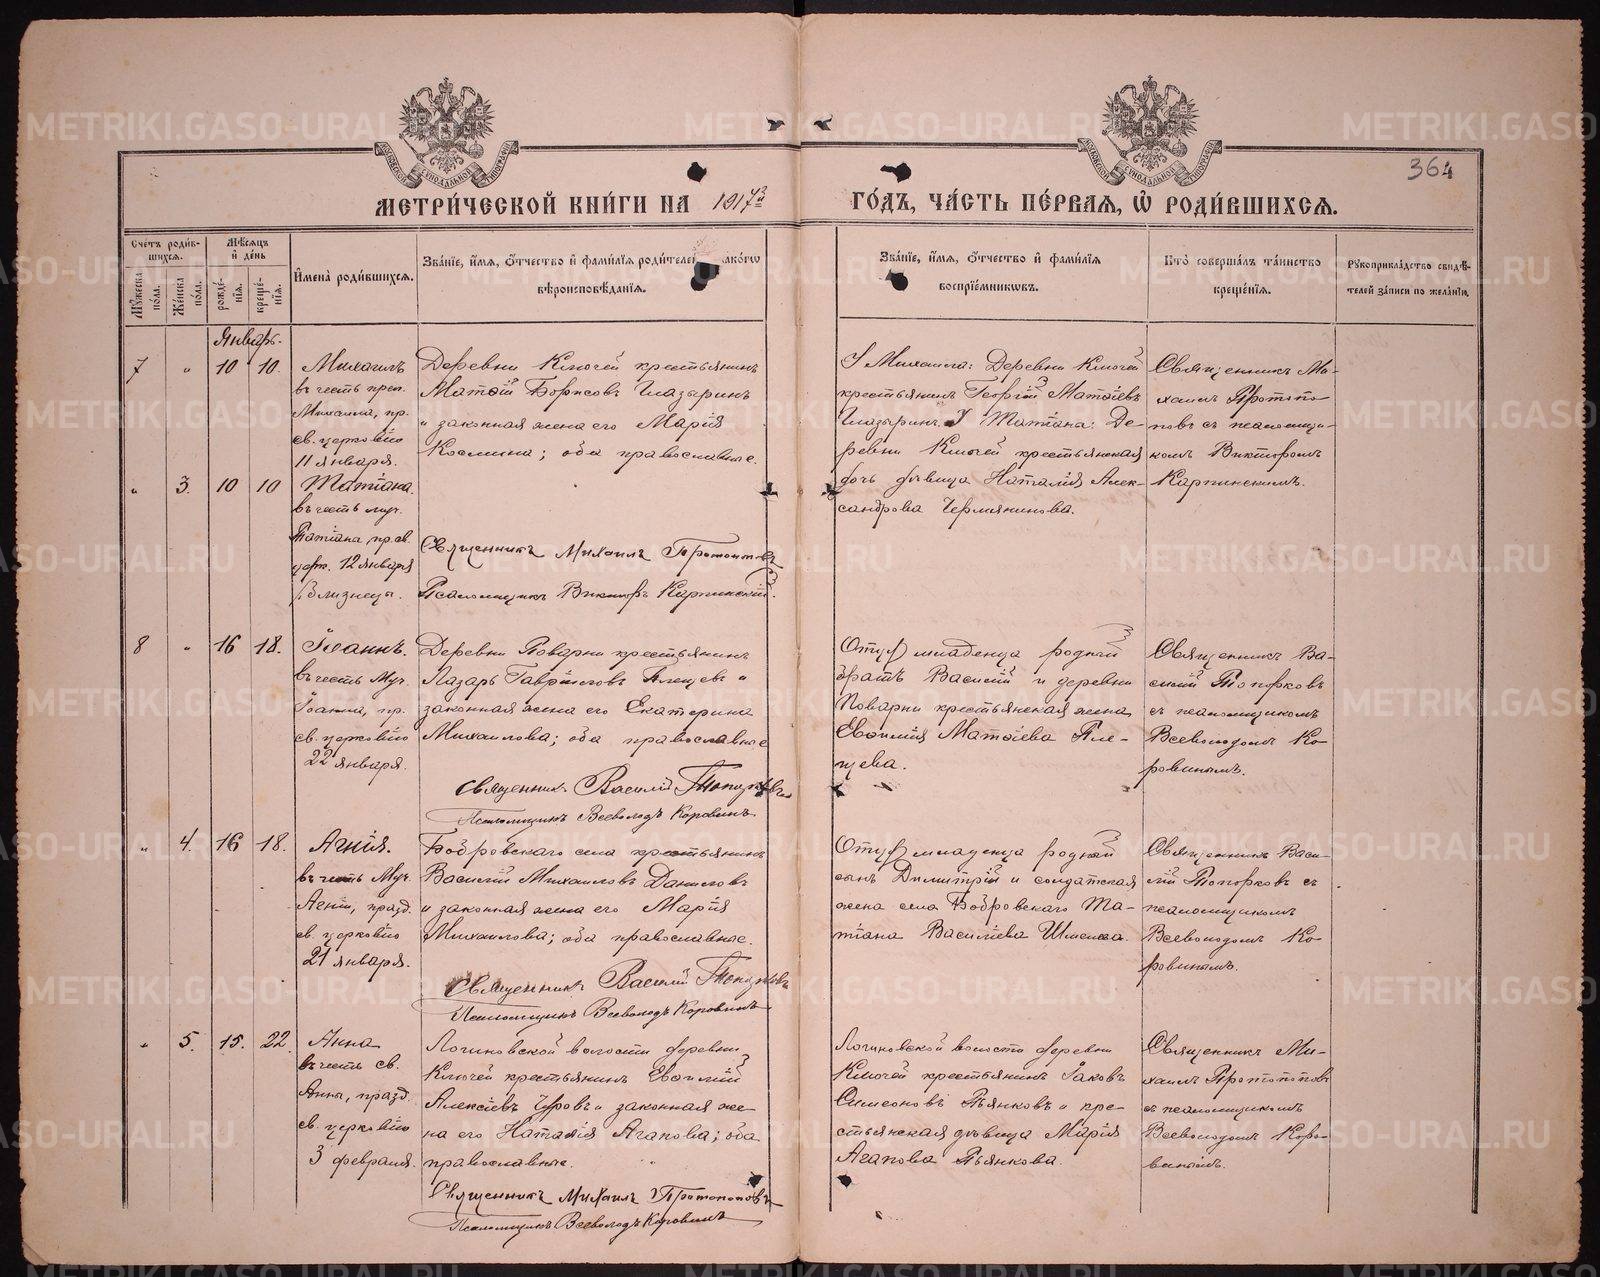 364
МЕТРИ́ЧЕСКОЙ КНИ́ГИ НА 1917й
ГО́ДЪ, ЧА́СТЬ ПЕ́РВАЯ, Ѽ РОДИ́ВШИХСЯ.
Сче́тъ роди́в-
шихся.
Мꙋ́жеска по́ла.
Же́нска по́ла.
Мѣ́сяцъ и де́нь
рожде́-
нїя.
креще́-
нїя.
И҆мена̀ роди́вшихся.
Зва́нїе, и҆́мя, ѻ҆́тчество и҆ фами́лїя роди́телей, како́гѡ
вѣроисповѣ́данїя.
Зва́нїе, и҆́мя, ѻ҆́тчество и҆ фами́лїя
воспрїе́мникѡвъ.
Кто̀ соверша́лъ та́инство
креще́нїя.
Рꙋкоприкла́дство свидѣ́-
телей за́писи по жела́нїю.
Январь.
7 " 10 10.
Михаилъ
въ честь преп.
Михаила, пр.
св. церковію
11 января.
Деревни Ключей крестьянинъ
Матѳій Борисовъ Глазыринъ
и законная жена его Марія
Космина; оба православные.
У Михаила: Деревни Ключей
крестьянинъ Георгій Матѳіевъ
Глазыринъ. У Татіаны: Де-
ревни Ключей крестьянская
дочь дѣвица Наталія Алек-
сандрова Чермянинова.
Священникъ Ми-
хаилъ Протопо-
повъ съ псаломщи-
комъ Викторомъ
Карпинскимъ.
" 3. 10 10
Татіана
въ честь муч.
Татіаны, пр. св.
церк. 12 января
близнецы.
Священникъ Михаилъ Протопоповъ
Псаломщикъ Викторъ Карпинскій.
8 " 16 18.
Іоаннъ.
въ честь Муч.
Іоанна, пр.
св. церковію
22 января.
Деревни Поварни крестьянинъ
Лазарь Гавріиловъ Плещевъ и
законная жена его Екатерина
Михаилова; оба православные
Священникъ Василій Топорковъ
Псаломщикъ Всеволодъ Коровинъ
Отцу младенца родный
братъ Василій и деревни
Поварни крестьянская жена
Евѳимія Матѳіева Пле-
щева.
Священникъ Ва-
силій Топорковъ
съ псаломщикомъ
Всеволодомъ Ко-
ровинымъ.
" 4. 16 18.
Агнія.
въ честь Муч.
Агніи, празд.
св. церковію
21 января.
Бобровскаго села крестьянинъ
Василій Михаиловъ Даниловъ
и законная жена его Марія
Михаилова; оба православные.
Священникъ Василій Топорковъ
Псаломщикъ Всеволодъ Коровинъ
Отцу младенца родной
сынъ Димитрій и солдатская
жена села Бобровскаго Та-
тіана Василіева
Священникъ Васи-
лій Топорковъ съ
псаломщикомъ
Всеволодомъ Ко-
ровинымъ.
" 5. 15. 22.
Анна
въ честь св.
Анны, празд.
св. церковію
3 февраля.
Логиновской волости деревни
Ключей крестьянинъ Евѳимій
Алексіевъ и законная же-
на его Наталія Агапова; оба
православные.
Священникъ Михаилъ Протопоповъ
Псаломщикъ Всеволодъ Коровинъ
Логиновской волости деревни
Ключей крестьянинъ Іаковъ
Симеоновъ Пьянковъ и кре-
стьянская дѣвица Марія
Агапова Пьянкова.
Священникъ Ми-
хаилъ Протопоповъ
съ псаломщикомъ
Всеволодомъ Коро-
винымъ.
METRIKI.GASO-URAL.RU